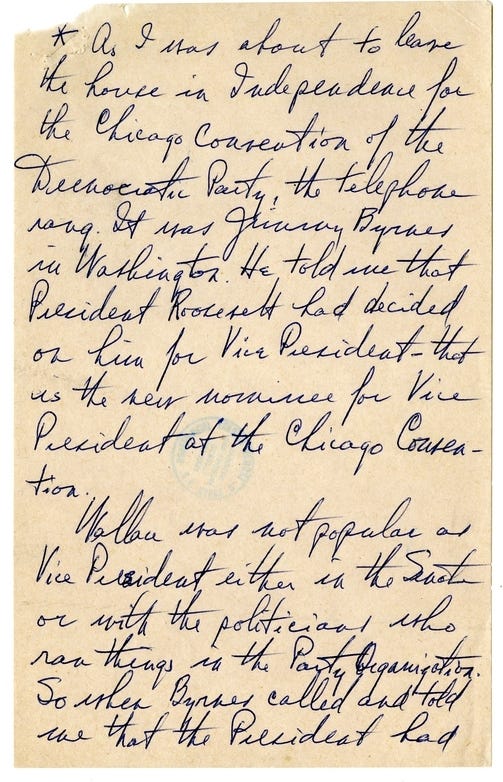 * As I was about to leave
the house in Independence for
the Chicago Convention of the
Democratic Party, the telephone
rang. It was Jimmy Byrnes
in Washington. He told me that
President Roosevelt had decided
on him for Vice President - that
is the new nominee for Vice
President at the Chicago Conven-
tion.
Wallace was not popular as
Vice President either in the Senate
or with the politicians who
ran things in the Party Organization.
So when Byrnes called and told
me that the President had